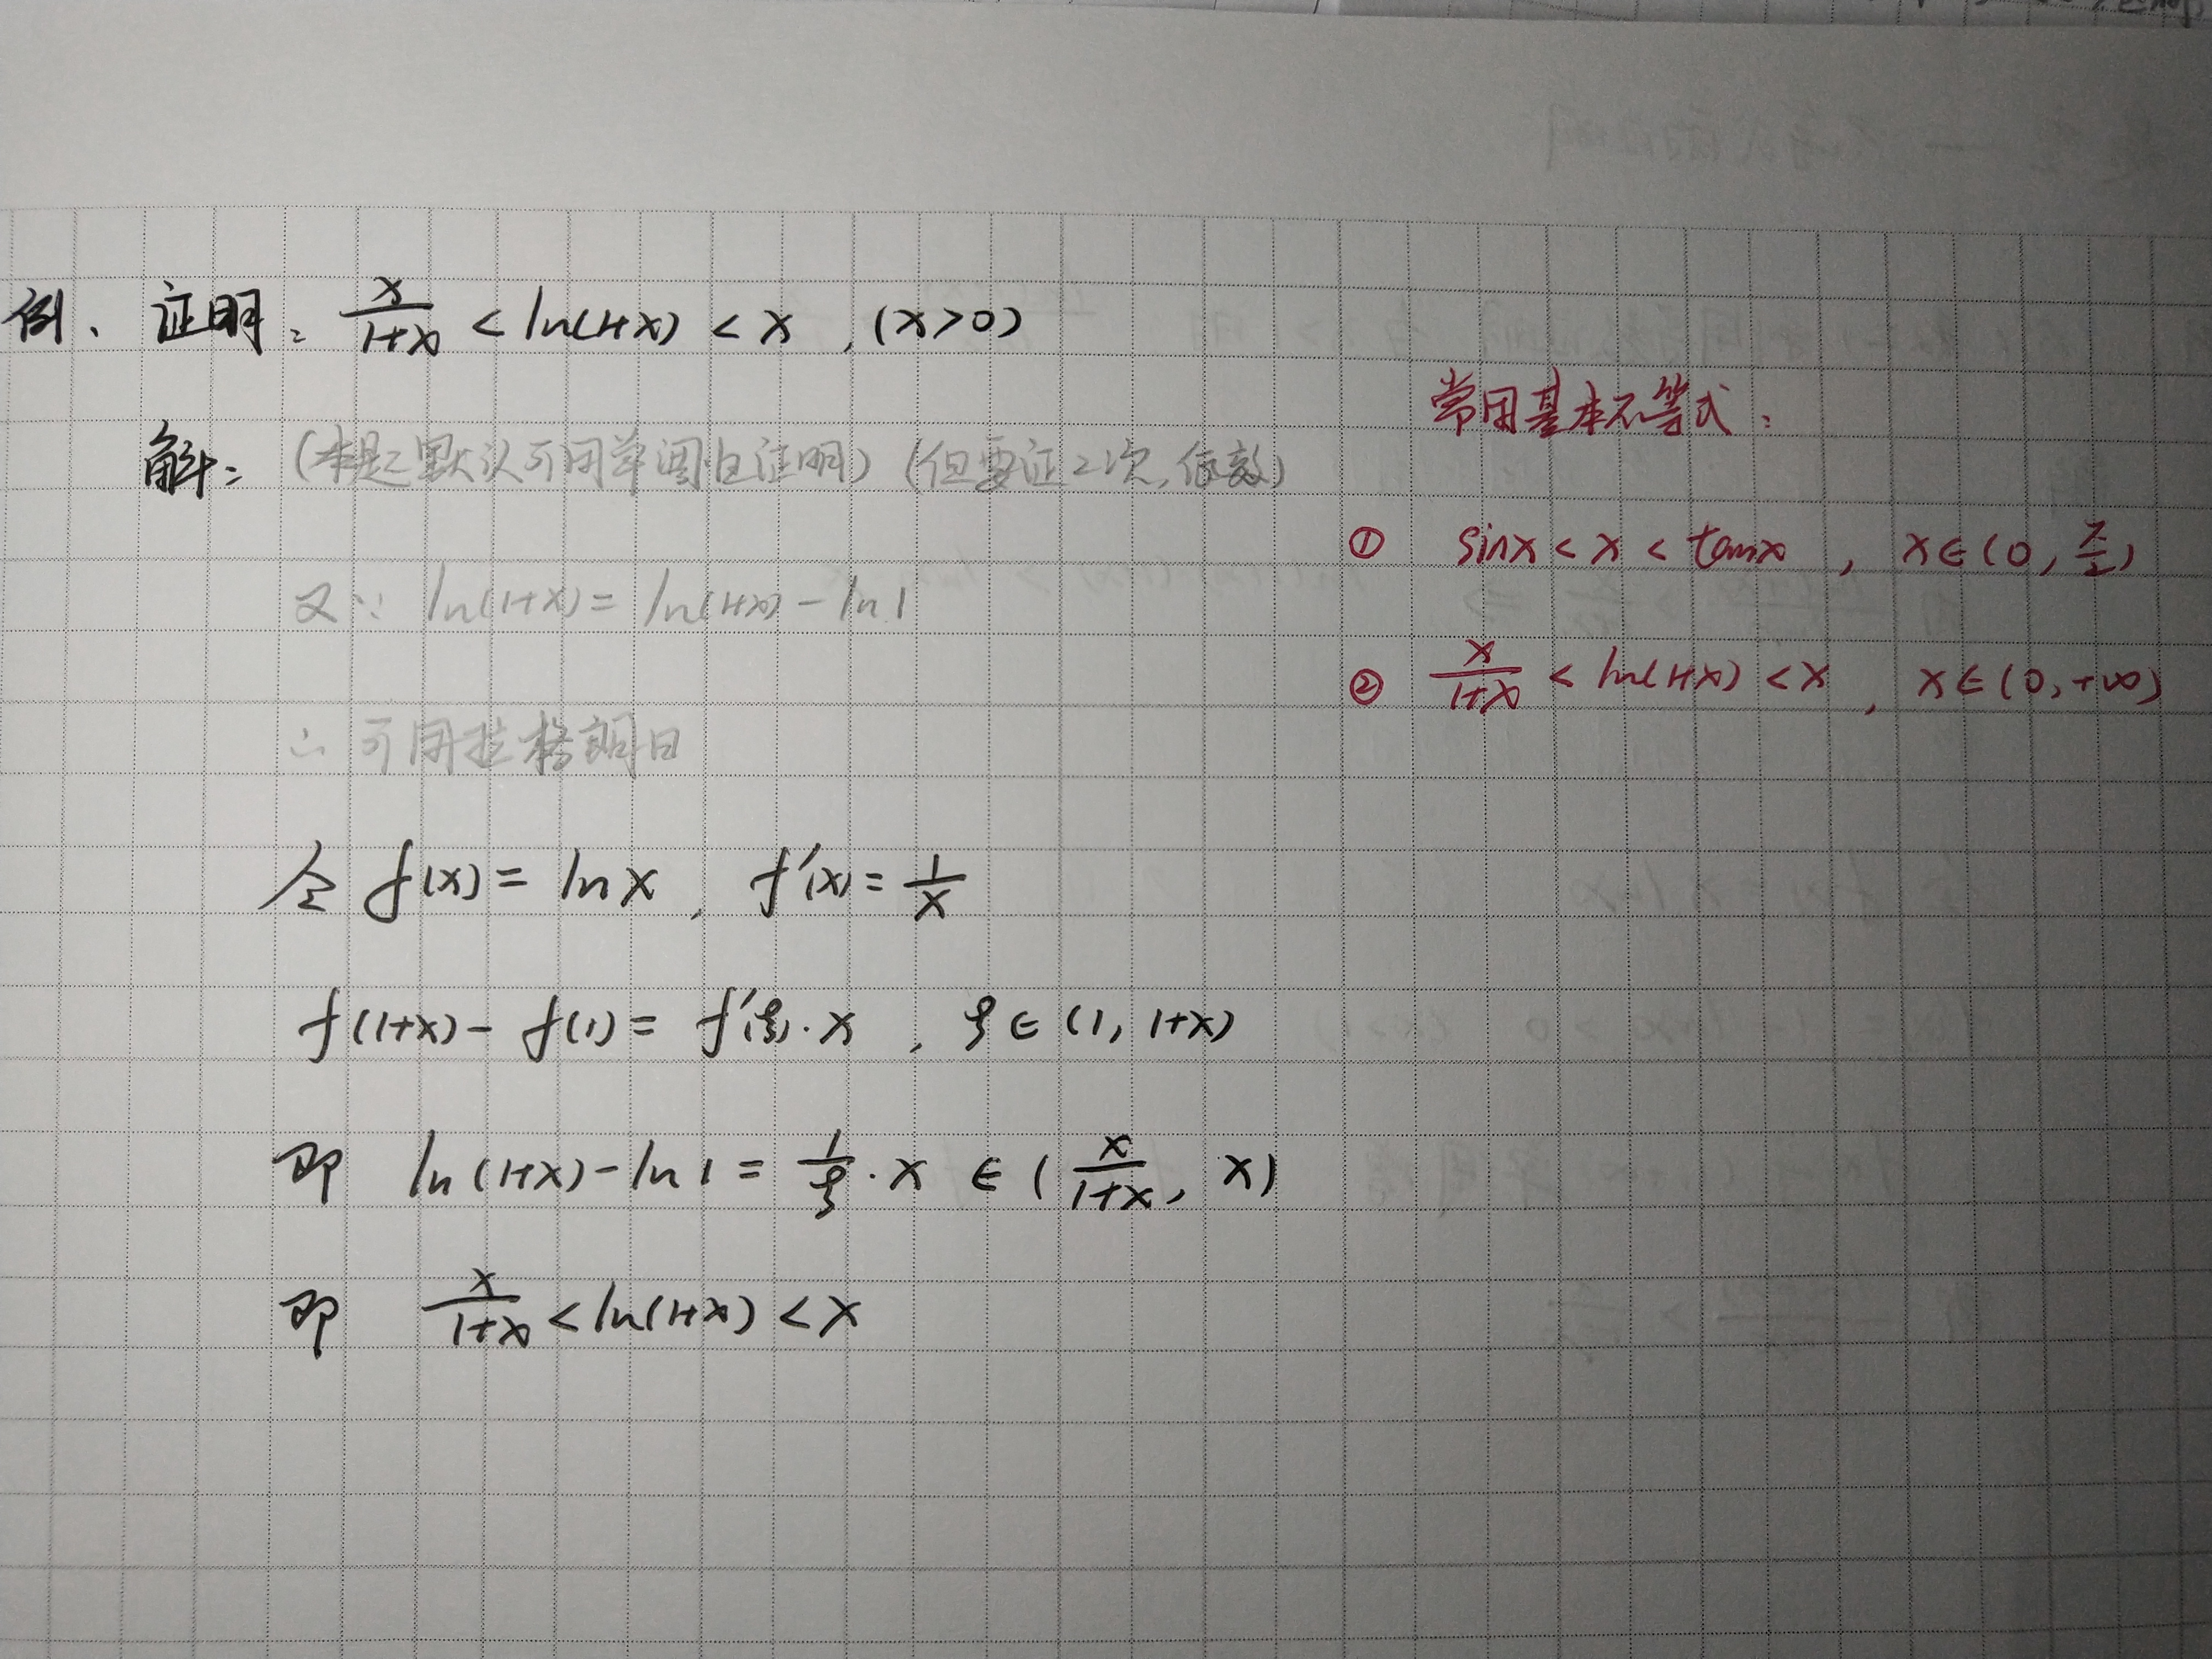 例、证明：x/(1+x) < ln(1+x) < x ，(x>0)
解：(本题默认可用单调性证明)(但要证2次,低效)
又∵ ln(1+x) = ln(1+x) - ln1
∴ 可用拉格朗日
令 f(x) = lnx ， f′(x) = 1/x
f(1+x) - f(1) = f′(ξ)·x ， ξ∈(1, 1+x)
即 ln(1+x) - ln1 = 1/ξ · x ∈ (x/(1+x), x)
即 x/(1+x) < ln(1+x) < x
常用基本不等式：
① sinx < x < tanx ， x∈(0, π/2)
② x/(1+x) < ln(1+x) < x ， x∈(0, +∞)